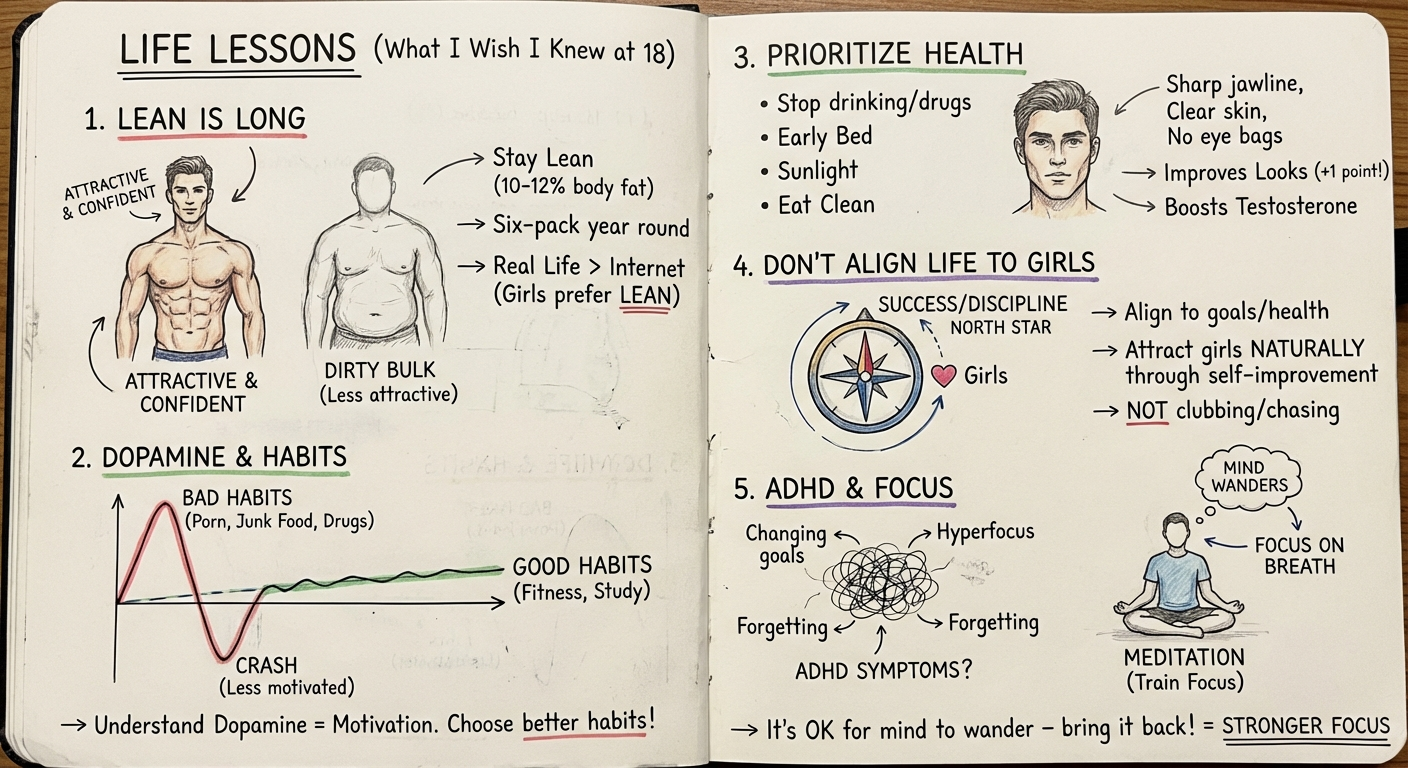 LIFE LESSONS (What I Wish I Knew at 18)
1. LEAN IS LONG
ATTRACTIVE
& CONFIDENT
ATTRACTIVE &
CONFIDENT
DIRTY BULK
(Less attractive)
→ Stay Lean
(10-12% body fat)
→ Six-pack year round
→ Real Life > Internet
(Girls prefer LEAN)
2. DOPAMINE & HABITS
BAD HABITS
(Porn, Junk Food, Drugs)
GOOD HABITS
(Fitness, Study)
CRASH
(Less motivated)
→ Understand Dopamine = Motivation. Choose better habits!
3. PRIORITIZE HEALTH
• Stop drinking/drugs
• Early Bed
• Sunlight
• Eat Clean
Sharp jawline,
Clear skin,
No eye bags
→ Improves Looks (+1 point!)
→ Boosts Testosterone
4. DON'T ALIGN LIFE TO GIRLS
SUCCESS/DISCIPLINE
NORTH STAR
Girls
→ Align to goals/health
→ Attract girls NATURALLY
through self-improvement
→ NOT clubbing/chasing
5. ADHD & FOCUS
Changing
goals
Hyperfocus
Forgetting
Forgetting
ADHD SYMPTOMS?
MIND
WANDERS
FOCUS ON
BREATH
MEDITATION
(Train Focus)
→ It's OK for mind to wander – bring it back! = STRONGER FOCUS